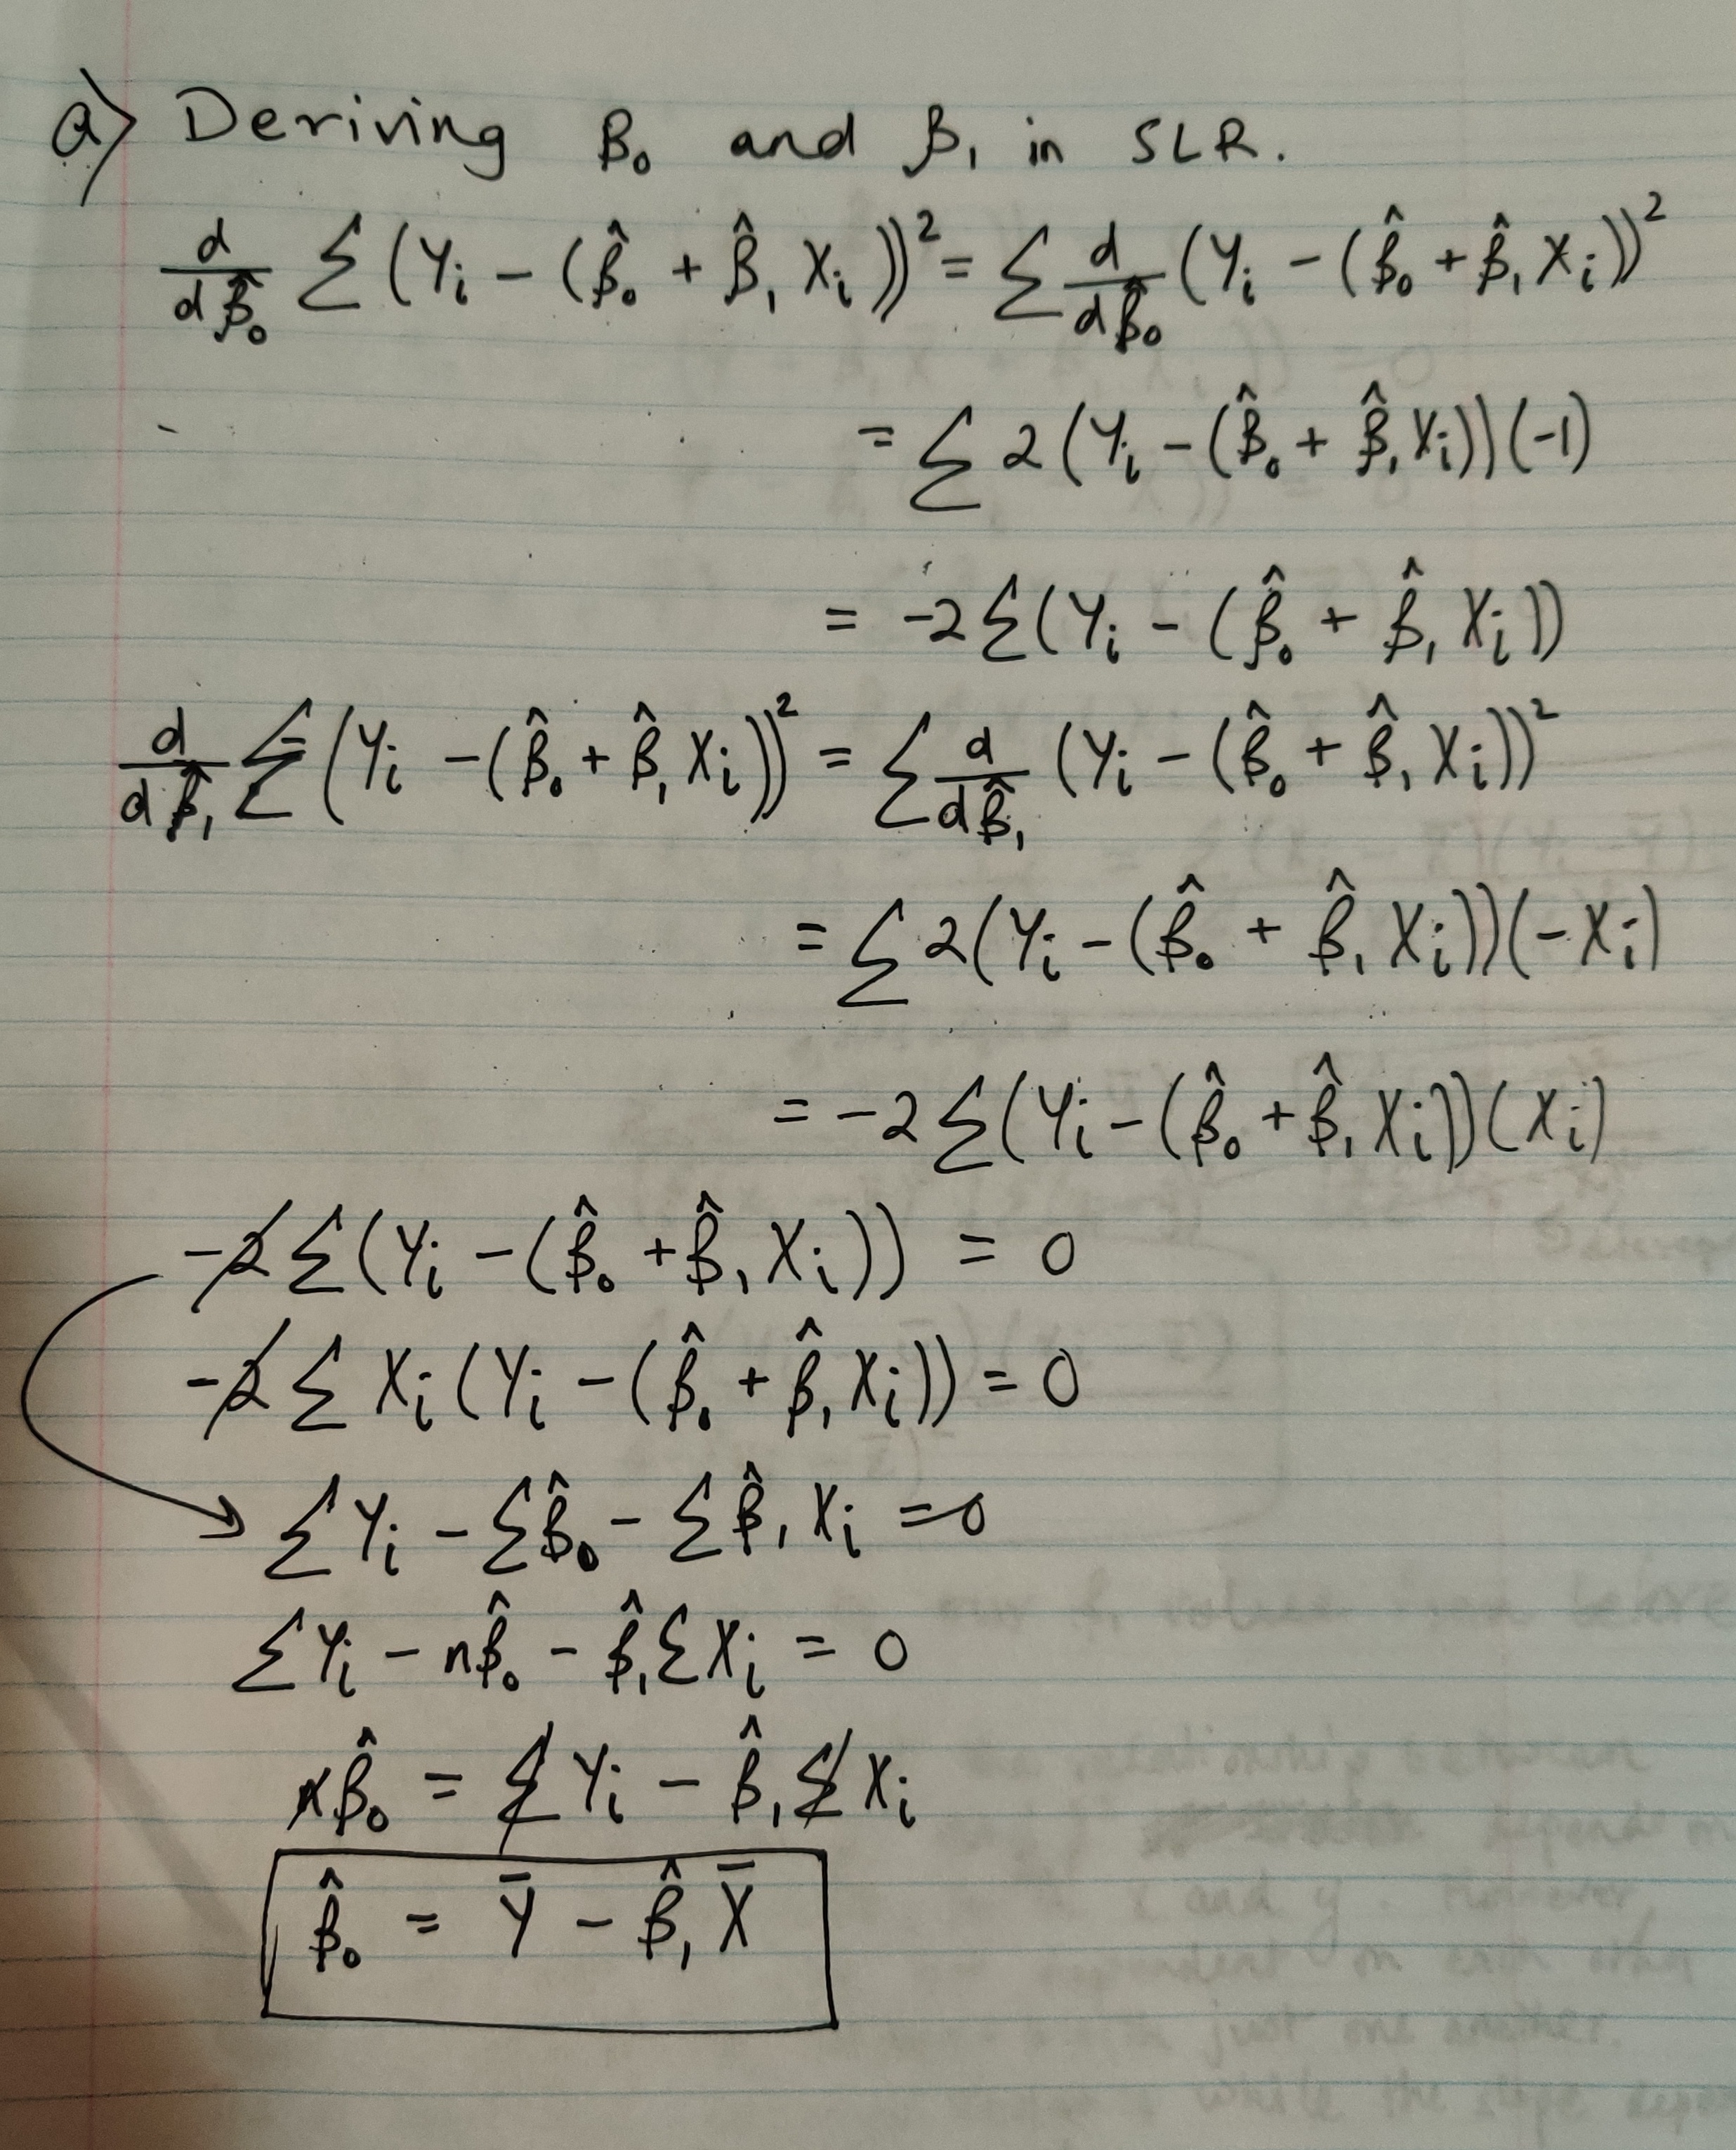 a) Deriving β₀ and β₁ in SLR.
d/dβ̂₀ Σ(Yᵢ − (β̂₀ + β̂₁Xᵢ))² = Σ d/dβ̂₀ (Yᵢ − (β̂₀ + β̂₁Xᵢ))²
= Σ 2(Yᵢ − (β̂₀ + β̂₁Xᵢ))(−1)
= −2Σ(Yᵢ − (β̂₀ + β̂₁Xᵢ))
d/dβ̂₁ Σ(Yᵢ − (β̂₀ + β̂₁Xᵢ))² = Σ d/dβ̂₁ (Yᵢ − (β̂₀ + β̂₁Xᵢ))²
= Σ 2(Yᵢ − (β̂₀ + β̂₁Xᵢ))(−Xᵢ)
= −2Σ(Yᵢ − (β̂₀ + β̂₁Xᵢ))(Xᵢ)
−2Σ(Yᵢ − (β̂₀ + β̂₁Xᵢ)) = 0
−2Σ Xᵢ(Yᵢ − (β̂₀ + β̂₁Xᵢ)) = 0
→ ΣYᵢ − Σβ̂₀ − Σβ̂₁Xᵢ = 0
ΣYᵢ − nβ̂₀ − β̂₁ΣXᵢ = 0
nβ̂₀ = ΣYᵢ − β̂₁ΣXᵢ
β̂₀ = Ȳ − β̂₁X̄